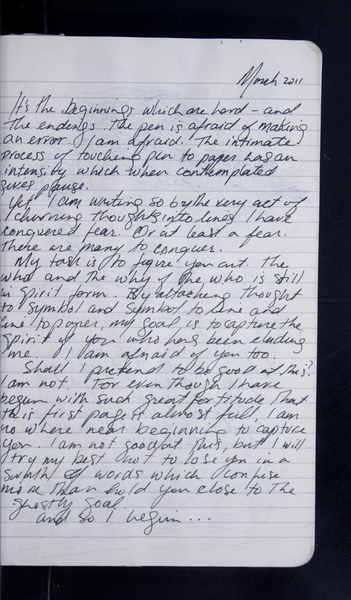 March 2011
It's the beginnings which are hard - and
the endings. The pen is afraid of making
an error. I am afraid. The intimate
process of touching pen to paper has an
intensity which when contemplated
gives pause.
Yet I am writing so by the very act of
churning thoughts into lines I have
conquered fear. Or at least a fear.
There are many to conquer.
My task is to figure you out. The
who and the why of the who is still
in spirit form. By attaching thought
to symbol and symbol to line and
line to paper, my goal is to capture the
spirit of you who has been eluding
me. I am afraid of you too.
Shall I pretend to be good at this?
I am not. For even though I have
begun with such great fortitude that
this first page is almost full, I am
no where near beginning to capture
you. I am not good at this, but I will
try my best not to lose you in a
swath of words which confuse
more than hold you close to the
ghostly goal.
and so I begin...